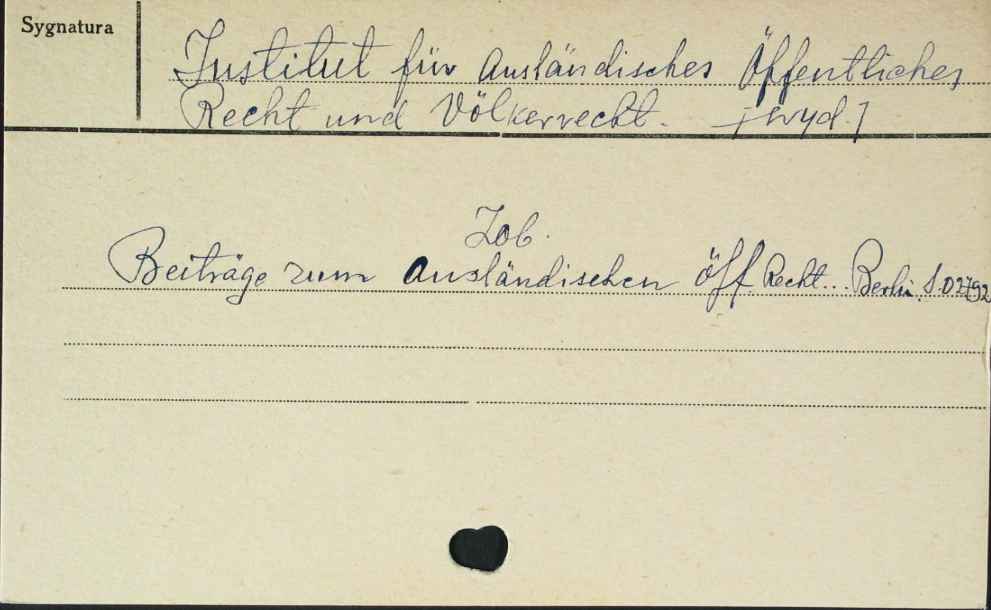 Sygnatura
Institut für Ausländisches Öffentliches
Recht und Völkerrecht. [wyd.]
Zob.
Beiträge zum Ausländischen öff. Recht... Berlin.